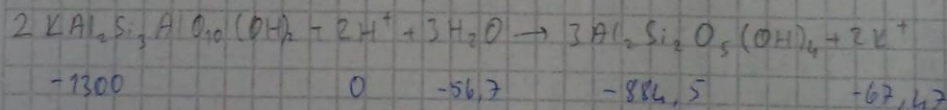 2 KAl₂Si₃AlO₁₀(OH)₂ + 2H⁺ + 3H₂O → 3Al₂Si₂O₅(OH)₄ + 2K⁺
-1300 0 -56,7 -884,5 -67,47